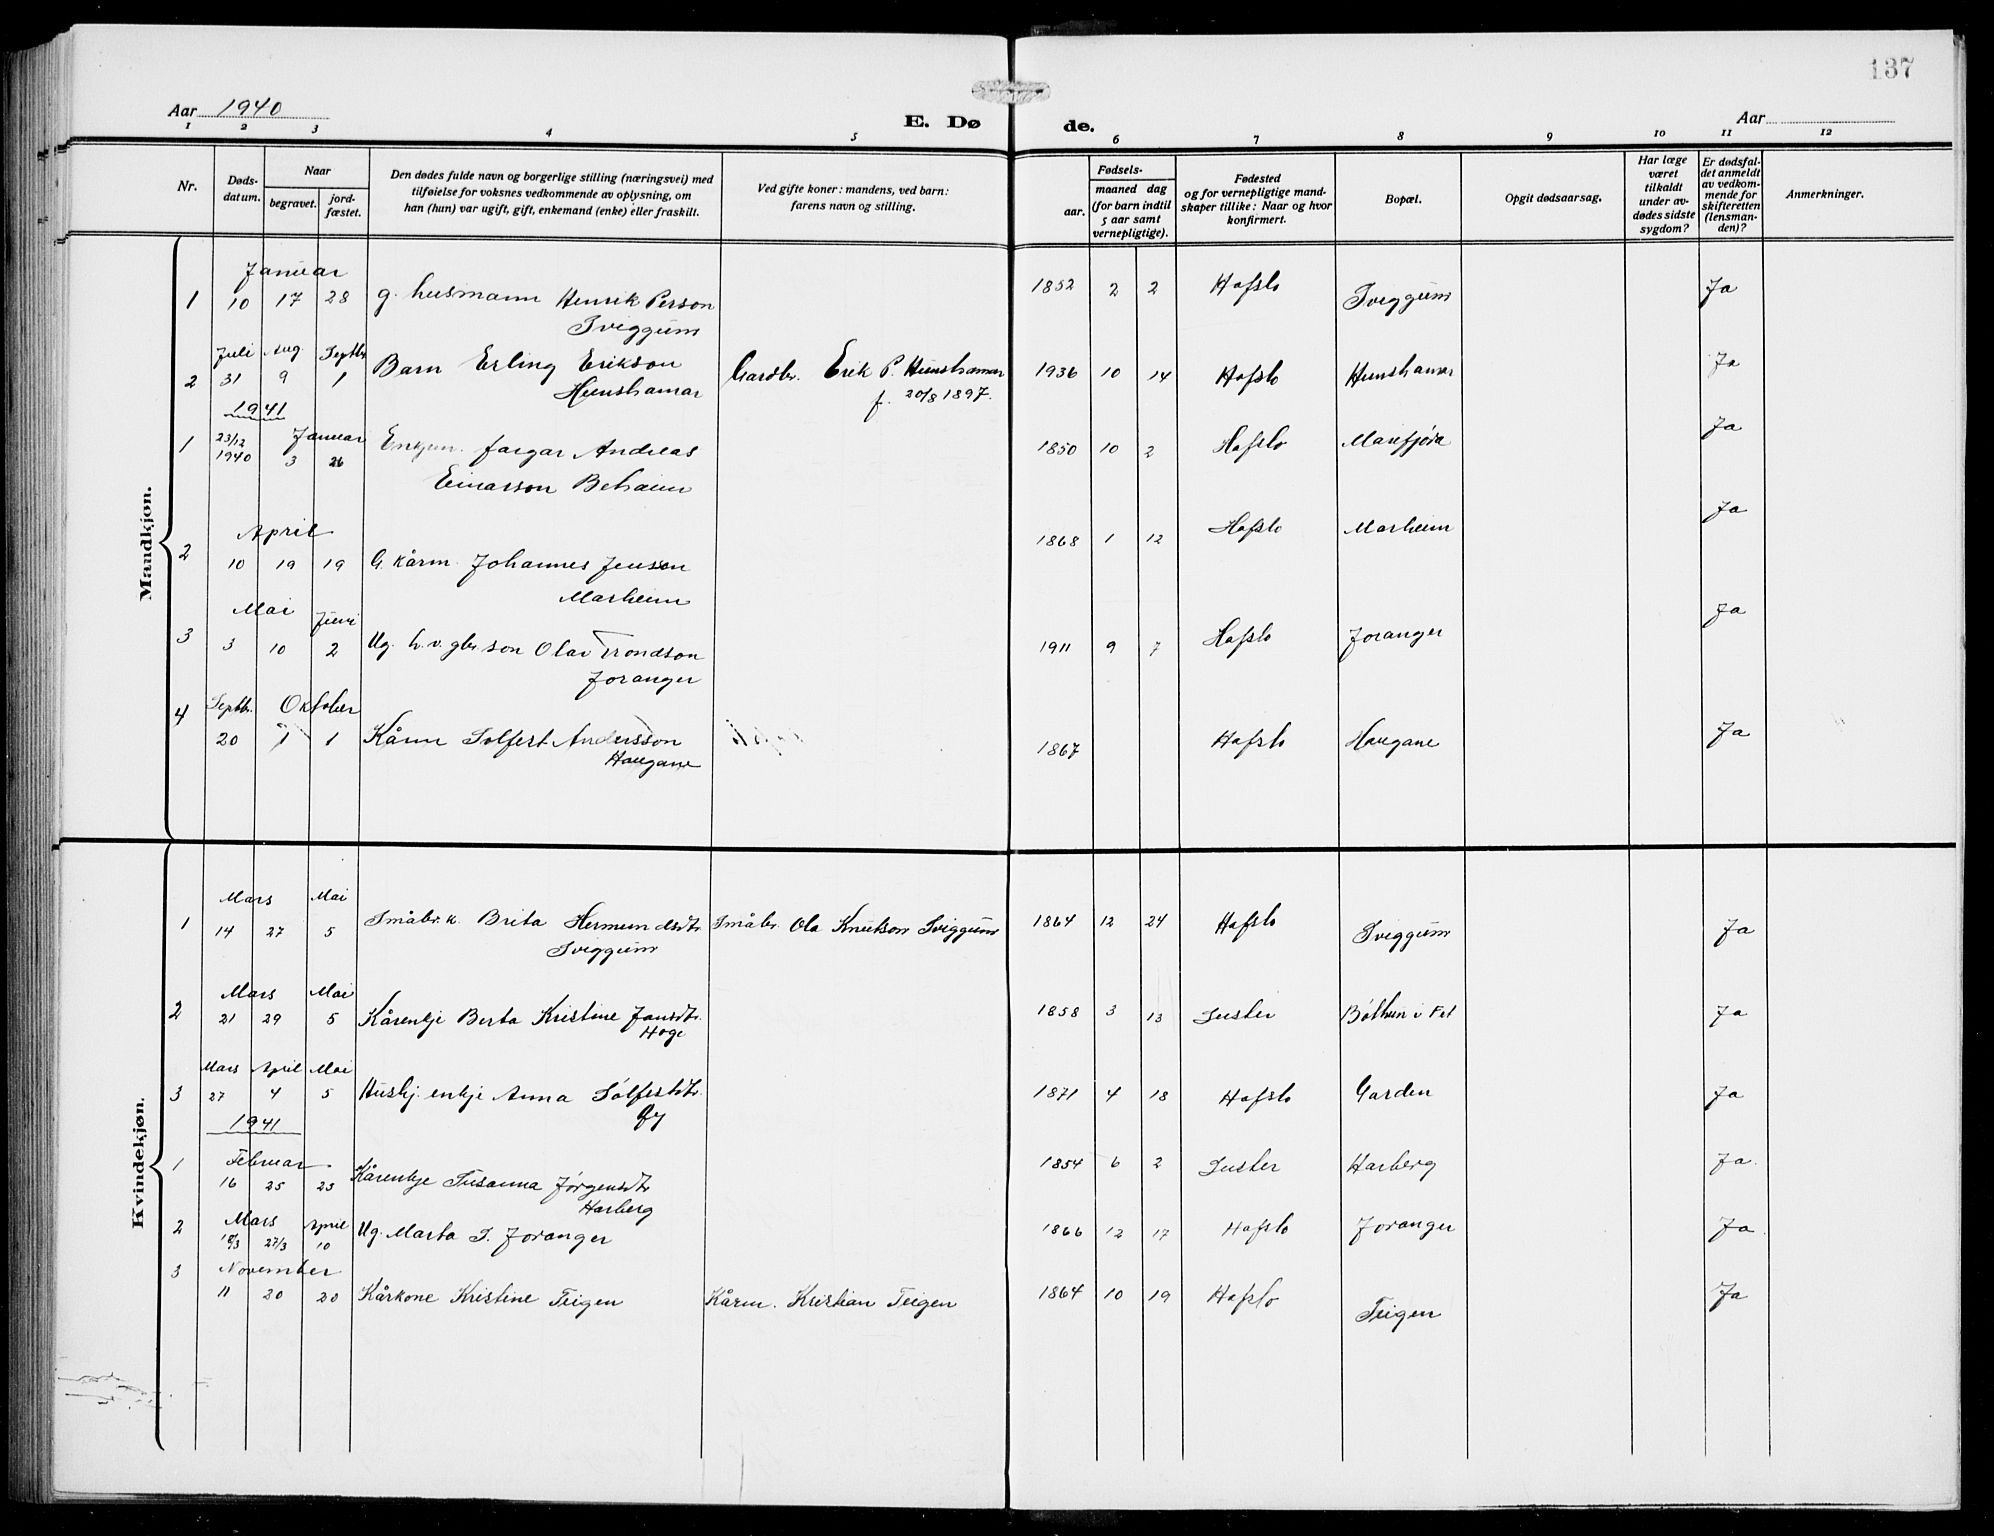 137
Aar 1940
E. Dø de.
Aar
1 2 3 4 5 6 7 8 9 10 11 12
Nr.
Døds-
datum.
Naar
begravet.
jord-
fæstet.
Den dødes fulde navn og borgerlige stilling (næringsvei) med
tilføielse for voksnes vedkommende av oplysning, om
han (hun) var ugift, gift, enkemand (enke) eller fraskilt.
Ved gifte koner: mandens, ved barn:
farens navn og stilling.
Fødsels-
aar.
maaned dag
(for barn indtil
5 aar samt
vernepligtige).
Fødested
og for vernepligtige mand-
skaper tillike: Naar og hvor
konfirmert.
Bopæl.
Opgit dødsaarsag.
Har læge
været
tilkaldt
under av-
dødes sidste
sygdom?
Er dødsfal-
det anmeldt
av vedkom-
mende for
skifteretten
(lensman-
den)?
Anmerkninger.
Mandkjøn.
Januar
1 10 17 28 g. husmann Henrik Person 1852 2 2 Hafslo Sviggum Ja
Sviggum
Juli Aug. Septbr
2 31 9 1 Barn Erling Erikson Gardbr. Erik P. Hunshamar 1936 10 14 Hafslo Hunshamar Ja
Hunshamar f. 20/8 1897.
1941
23/12 Januar
1 1940 3 26 Enkjem. fargar Andreas 1850 10 2 Hafslo Marifjøra Ja
Einarson Beheim
April
2 10 19 19 G. kårm. Johannes Jensen 1868 1 12 Hafslo Marheim Ja
Marheim
Mai Juni
3 3 10 2 Ug. h.v. gbr. son Olav Trondson 1911 9 7 Hafslo Joranger Ja
Joranger
Septbr. Oktober
4 20 1 1 Kårm Solfest Andersson 1867 Hafslo Haugane Ja
Haugane
Kvindekjøn.
Mars Mai
1 14 27 5 Småbr. k. Brita Hermundsdtr. Småbr. Ola Knutson Sviggum 1864 12 24 Hafslo Sviggum Ja
Sviggum
Mars Mai
2 21 29 5 Kårenkje Berta Kristine Jansdtr. 1858 3 13 Luster Bolthun i Fet Ja
Hoge
Mars April Mai
3 27 4 5 Huskj. enkje Anna Solfestdtr. 1871 4 18 Hafslo Garden Ja
Øy
1941
Februar
1 16 25 23 Kårenkje Susanna Jørgensdtr 1854 6 2 Luster Harberg Ja.
Harberg
Mars April
2 18/3 27/3 10 Ug. Marta S. Joranger 1866 12 17 Hafslo Joranger Ja
November
3 11 20 20 Kårkone Kristine Teigen Kårm. Kristian Teigen 1864 10 19 Hafslo Teigen Ja